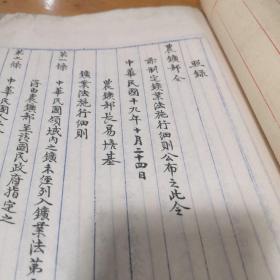 照錄
農鑛部令
茲制定鑛業法施行細則公布之此令
中華民國十九年十月二十四日
農鑛部長易培基
鑛業法施行細則
第一條
中華民國領域內之鑛未經列入鑛業法第
得由農鑛部呈請國民政府指定之
第二條
中華民國人